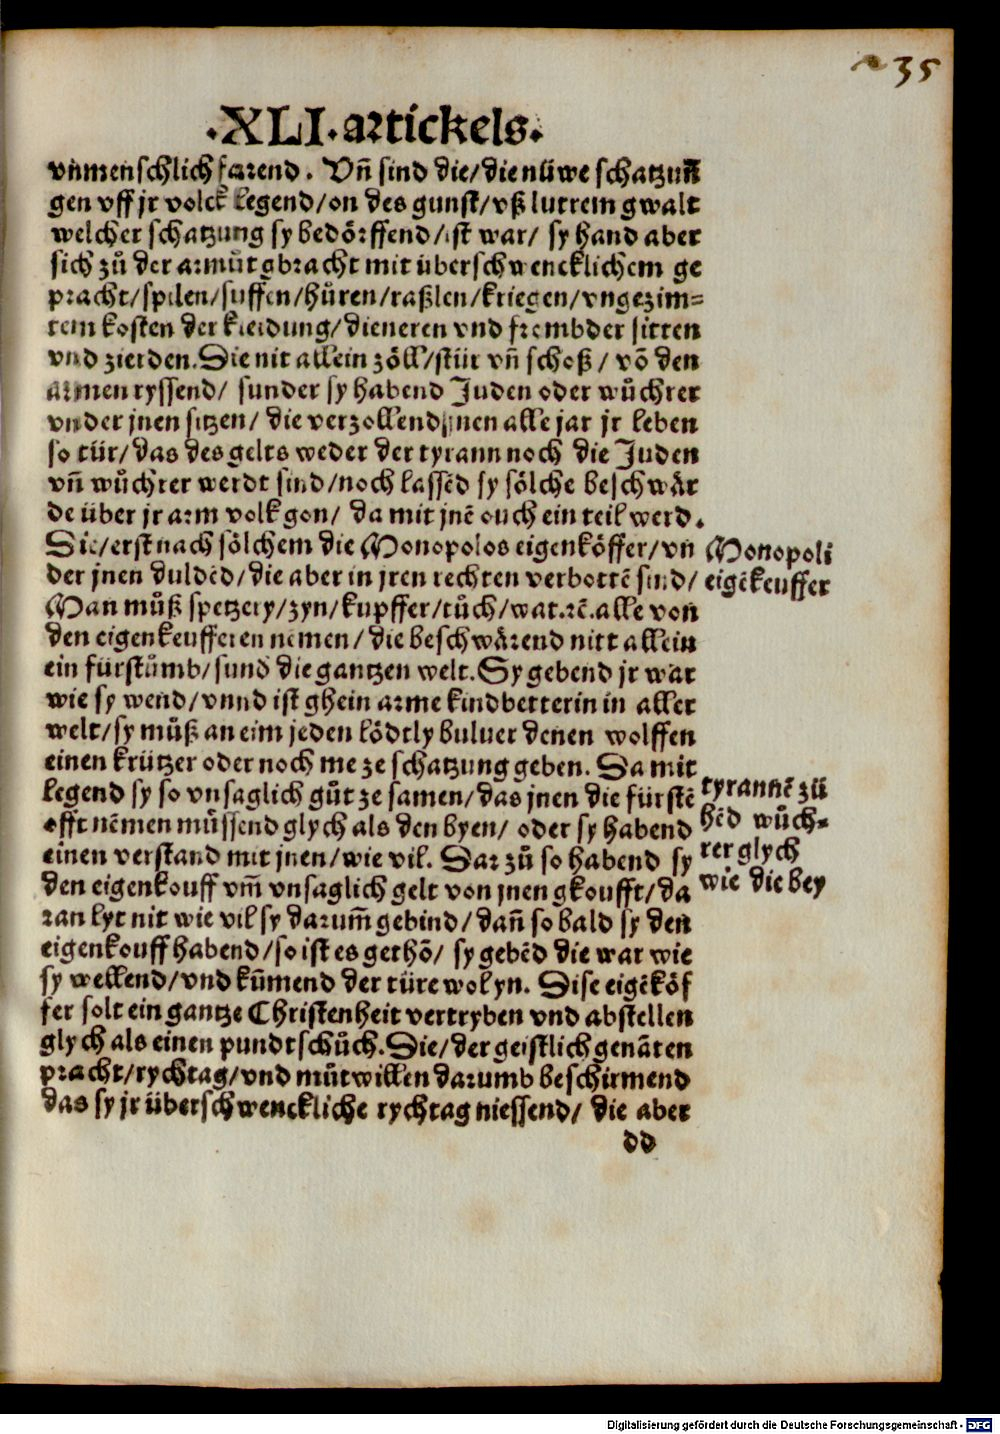 35
·XLI·artickels·
vnmenschlich farend. Vñ sind die/die nüwe schatzun̄
gen vff jr volck legend/on des gunst/vß lutrem gwalt
welcher schatzung sy bedörffend/ist war/ sy hand aber
sich zů der armůt gbracht mit überschwencklichem ge
pracht/spilen/suffen/hůren/raßlen/kriegen/vngezim=
tem kosten der kleidung/dieneren vnd frembder sitten
vnd zierden. Die nit allein zöll/stür vñ schoß/ võ den
armen ryssend/ sunder sy habend Juden oder wůchrer
vnder jnen sitzen/ die verzollend jnen alle jar jr leben
so tür/das des gelts weder der tyrann noch die Juden
vñ wůchrer werdt sind/noch lassēd sy sölche beschwär
de über jr arm volk gon/ da mit jnē ouch ein teil werd.
Die/erst nach sölchem die Monopolos eigenköffer/vn
der jnen duldēd/die aber in jren rechten verbottē sind/
Man můß spetzery/zyn/kupffer/tůch/wat.rē.alle von
den eigenkeufferen nemen/ die beschwärend nitt allein
ein fürstůmb/sund die gantzen welt. Sy gebend jr war
wie sy wend/vnnd ist ghein arme kindbetterin in aller
welt/sy můß an eim jeden lödtly buluer denen wolffen
einen krützer oder noch me ze schatzung geben. Da mit
legend sy so vnsaglich gůt ze samen/das jnen die fürstē
offt nēmen müssend glych als den byen/ oder sy habend
einen verstand mit jnen/wie vil. Dar zů so habend sy
den eigenkouff vm̄ vnsaglich gelt von jnen gkoufft/da
ran lyt nit wie vil sy darum̄ gebind/ dañ so bald sy den
eigenkouff habend/so ist es gethō/ sy gebēd die war wie
sy wellend/vnd kům̄end der türe wol yn. Dise eigēköf
fer solt ein gantze Christenheit vertryben vnd abstellen
glych als einen pundtschůch. Die/der geistlich genāten
pracht/rychtag/vnd můtwillen darumb beschirmend
das sy jr überschwenckliche rychtag niessend/ die aber
dd
Monopoli
eigēkeuffer
tyrannē zü
hēd wůch=
rer glych
wie die bey
Digitalisierung gefördert durch die Deutsche Forschungsgemeinschaft - DFG